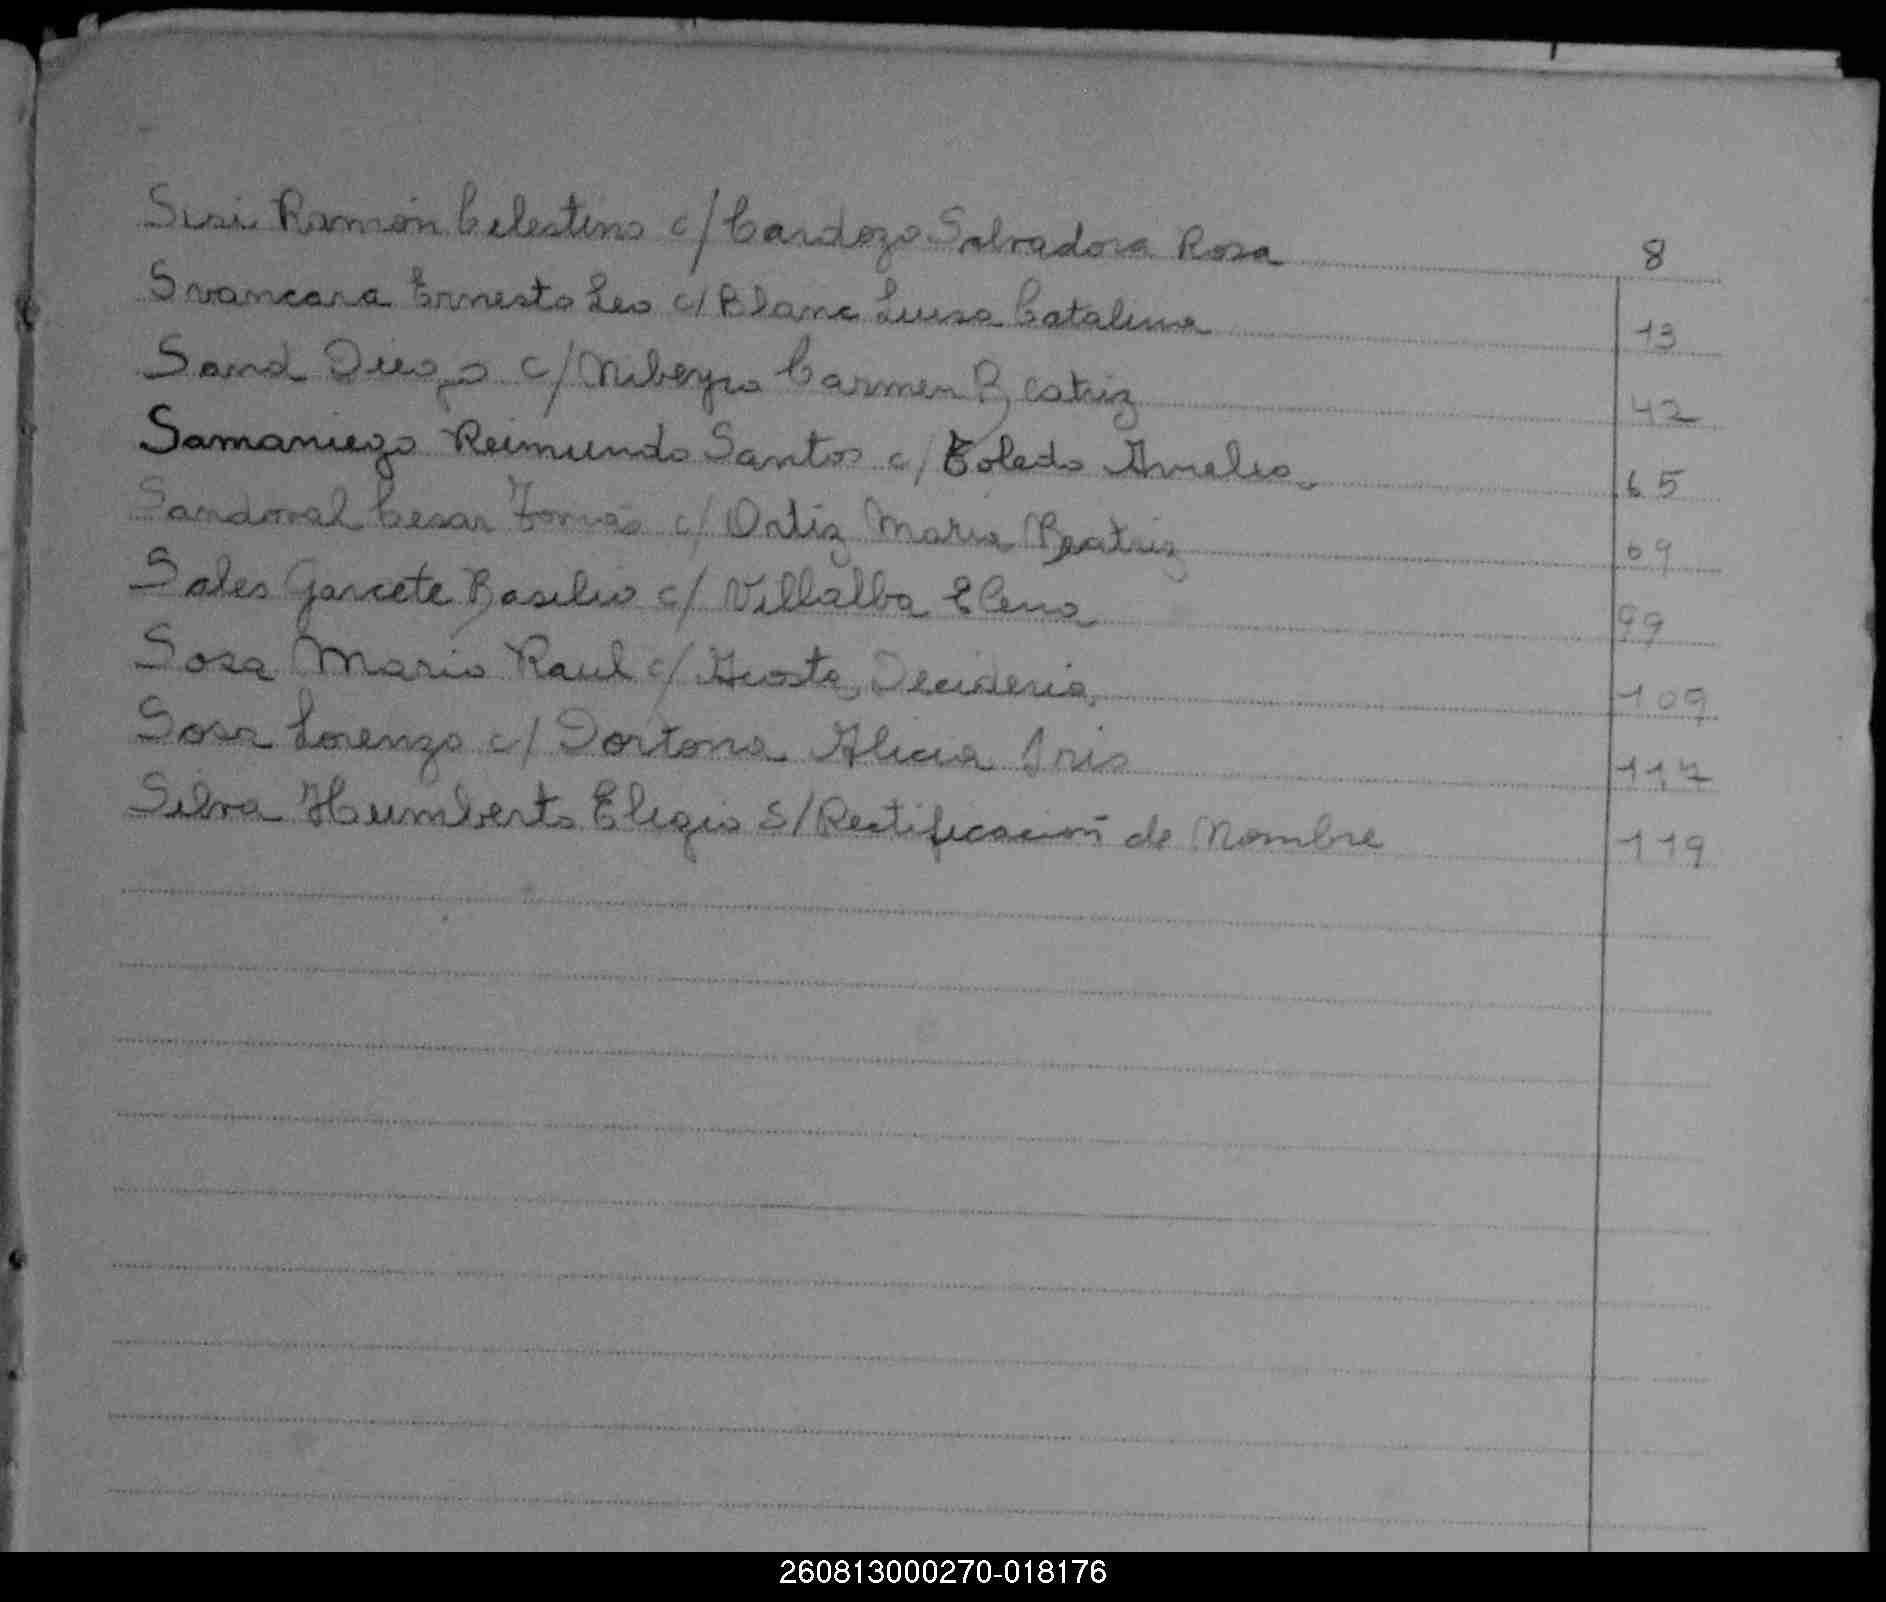 Sisi Ramón Celestino c/ Cardozo Salvadora Rosa 8
Svancara Ernesto Leo c/ Blanc Luisa Catalina 13
Sand Diego c/ Nibeyro Carmen Beatriz 42
Samaniego Reimundo Santos c/ Toledo Amelia 65
Sandoval Cesar Tomás c/ Ortiz Maria Beatriz 69
Sales Garcete Basilio c/ Villalba Elena 99
Sosa Mario Raul c/ Acosta Decideria 109
Sosa Lorenzo c/ Dortona Alicia Iris 117
Silva Humberto Eligio S/ Rectificación de Nombre 119
260813000270-018176